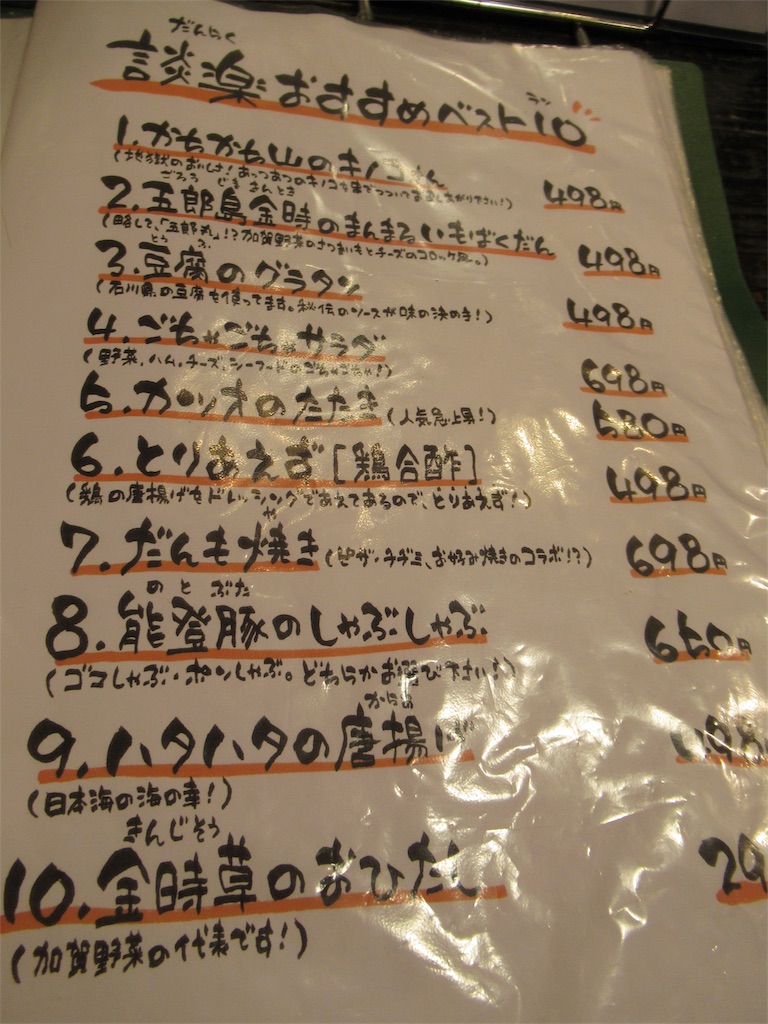 だんらく
談楽おすすめベスト10
ラン
1.かちかち山のキノコさん 498円
(地獄のおいしさ!あっつあつのキノコを串でつついてお召し上がり下さい!)
ごろう じま きんとき
2.五郎島金時のまんまるいもばくだん 498円
(略して、「五郎丸」!?加賀野菜のさつまいもとチーズのコロッケ風。)
とう ふ
3.豆腐のグラタン 498円
(石川県の豆腐を使ってます。秘伝のソースが味の決め手!)
4.ごちゃごちゃサラダ 698円
(野菜、ハム、チーズ、シーフードのごちゃごちゃ!)
5.カツオのたたき(人気急上昇!) 580円
6.とりあえず[鶏合酢] 498円
(鶏の唐揚げをドレッシングであえてあるので、とりあえず!)
や
7.だんも焼き(ピザ・チヂミ、お好み焼きのコラボ!?) 698円
のと ぶた
8.能登豚のしゃぶしゃぶ 650円
(ゴマしゃぶ・ポンしゃぶ。どちらかお選び下さい!)
からあ
9.ハタハタの唐揚げ 498
(日本海の海の幸!)
きんじそう
10.金時草のおひたし 29
(加賀野菜の代表です!)